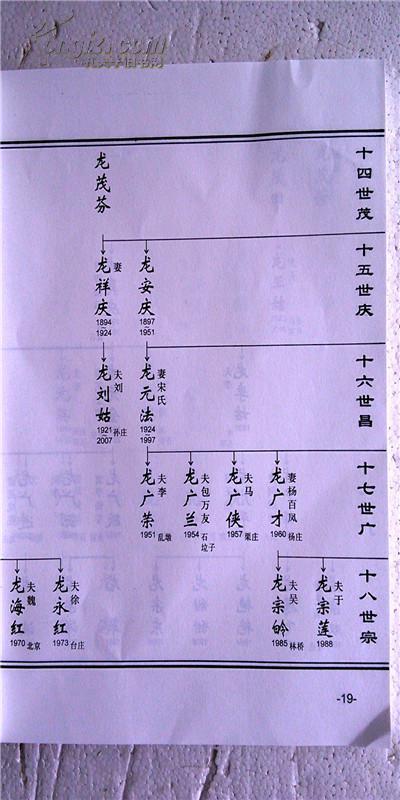 十四世茂
龙茂芬
十五世庆
龙安庆
1897
1951
妻
龙祥庆
1894
1924
十六世昌
妻宋氏
龙元法
1924
1997
夫刘
龙刘姑
1921 孙庄
2007
十七世广
妻杨百凤
龙广才
1960 杨庄
夫马
龙广侠
1957 栗庄
夫包万友
龙广兰
1954 石垃子
夫李
龙广荣
1951 乱墩
十八世宗
夫于
龙宗莲
1988
夫吴
龙宗皊
1985 林桥
夫徐
龙永红
1973 台庄
夫魏
龙海红
1970 北京
-19-